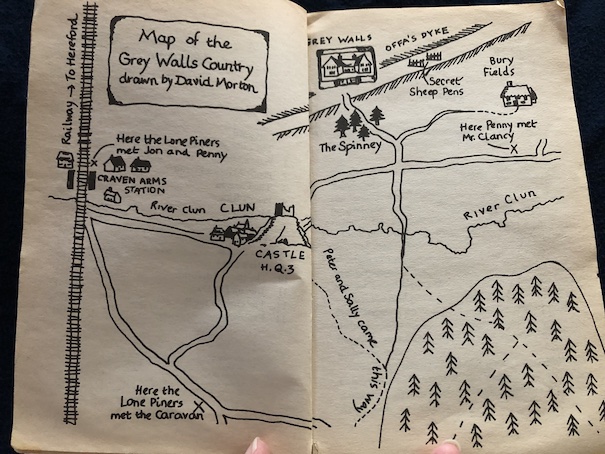 Map of the
Grey Walls Country
drawn by David Morton
Railway → To Hereford
Here the Lone Piners
met Jon and Penny
CRAVEN ARMS
STATION
River Clun
CLUN
CASTLE
H.Q.3
Here the
Lone Piners
met the Caravan
GREY WALLS
OFFA'S DYKE
Secret
Sheep Pens
Bury
Fields
The Spinney
Here Penny met
Mr. Clancy
River Clun
Peter and Sally came
this way